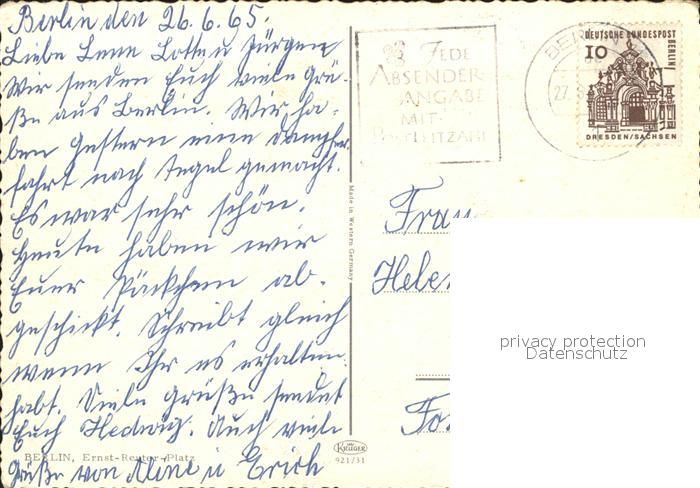 Berlin den 26.6.65.
Liebe Lene Lotte u Jürgen
Wir senden Euch viele Grü-
ße aus Berlin. Wir ha-
ben Gestern eine Dampfer
fahrt nach Tegel gemacht.
Es war sehr schön.
Heute haben wir
Euer Päckchen ab-
geschickt. Schreibt gleich
wenn Ihr es erhalten
habt. Viele Grüße sendet
Euch Hedwig. Auch viele
Grüße von u Erich
BERLIN, Ernst-Reuter-Platz
JEDE
ABSENDER-
ANGABE
MIT
POSTLEITZAHL
BERLIN
27.
DEUTSCHE BUNDESPOST
BERLIN
10
DRESDEN/SACHSEN
Made in Western Germany
Frau
Helen
KRÜGER
921/31
privacy protection
Datenschutz